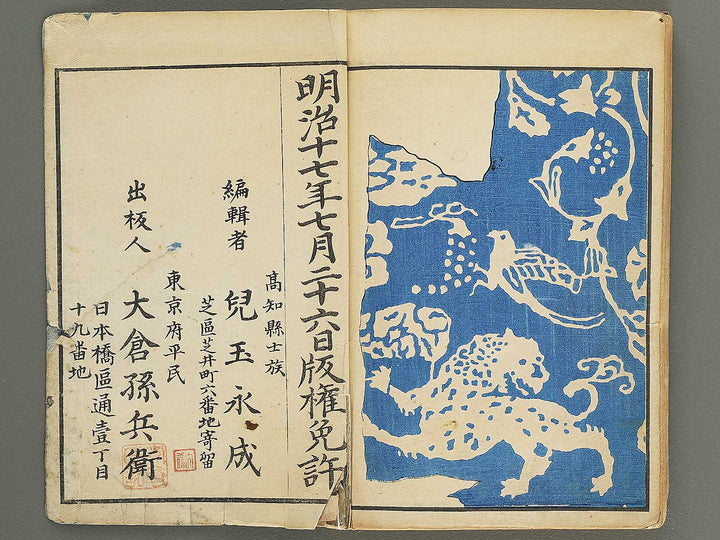 明治十七年七月二十六日版權免許
高知縣士族
編輯者 兒玉永成
芝區芝井町六番地寄留
東京府平民
出板人 大倉孫兵衛
日本橋區通壹丁目
十九番地